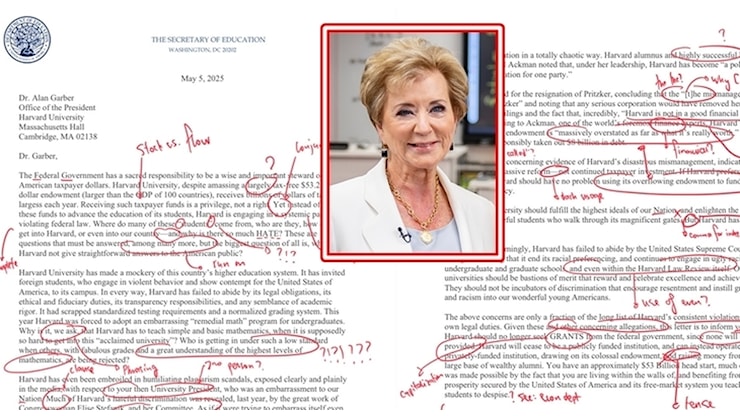 THE SECRETARY OF EDUCATION
WASHINGTON, DC 20202
May 5, 2025
Dr. Alan Garber
Office of the President
Harvard University
Massachusetts Hall
Cambridge, MA 02138
Dr. Garber,
start vs. flow
?
The Federal Government has a sacred responsibility to be a wise and important steward o
American taxpayer dollars. Harvard University, despite amassing a largely tax-free $53.2
dollar endowment (larger than the GDP of 100 countries), receives billions of dollars of t
largess each year. Receiving such taxpayer funds is a privilege, not a right. Yet instead of
these funds to advance the education of its students, Harvard is engaging in a systemic pa
violating federal law. Where do many of these students come from, who are they, how
get into Harvard, or even into our country—and why is there so much HATE? These are
questions that must be answered, among many more, but the biggest question of all is, wh
Harvard not give straightforward answers to the American public?
run on
?!?
Harvard University has made a mockery of this country's higher education system. It has invited
foreign students, who engage in violent behavior and show contempt for the United States of
America, to its campus. In every way, Harvard has failed to abide by its legal obligations, its
ethical and fiduciary duties, its transparency responsibilities, and any semblance of academic
rigor. It had scrapped standardized testing requirements and a normalized grading system. This
year Harvard was forced to adopt an embarrassing "remedial math" program for undergraduates.
Why is it, we ask, that Harvard has to teach simple and basic mathematics, when it is supposedly
so hard to get into this "acclaimed university"? Who is getting in under such a low standard
when others, with fabulous grades and a great understanding of the highest levels of
mathematics, are being rejected?
?!?!??
clause
Phrasing
no person?
Harvard has even been embroiled in humiliating plagiarism scandals, exposed clearly and plainly
in the media, with respect to your then University President, who was an embarrassment to our
Nation. Much of Harvard's hatred was revealed, last year, by the great work of
Congresswoman Elise Stefanik, and her Committee. As if
ation in a totally chaotic way. Harvard alumnus and highly successful
Ackman noted that, under her leadership, Harvard has become "a pol
tion for one party."
?
d for the resignation of Pritzker, concluding that the "[t]he mismanage
zker" and noting that any serious corporation would have removed her
ilings and the fact that, incredibly, "Harvard is not in a good financial
g to Ackman, one of the world's foremost financial experts, Harvard
endowment is "massively overstated as far as what it's really worth."
ponsibly taken out $8 billion in debt.
financial?
concerning evidence of Harvard's disastrous mismanagement, indicat
assive reform—not continued taxpayer investment. If Harvard prefer
ard should have no problem using its overflowing endowment to fund
ersity should fulfill the highest ideals of our Nation, and enlighten the
ful students who walk through its magnificent gates. But Harvard has
mingly, Harvard has failed to abide by the United States Supreme Cou
that it end its racial preferencing, and continues to engage in ugly rac
undergraduate and graduate schools, and even within the Harvard Law Review itself. O
universities should be bastions of merit that reward and celebrate excellence and achiev
They should not be incubators of discrimination that encourage resentment and instill gr
and racism into our wonderful young Americans.
use of even?
The above concerns are only a fraction of the long list of Harvard's consistent violations
own legal duties. Given these and other concerning allegations, this letter is to inform y
Harvard should no longer seek GRANTS from the federal government, since none will
provided. Harvard will cease to be a publicly funded institution, and can instead operate
privately-funded institution, drawing on its colossal endowment, and raising money from
large base of wealthy alumni. You have an approximately $53 Billion head start, much o
was made possible by the fact that you are living within the walls of, and benefiting from
prosperity secured by the United States of America and its free-market system you teach
students to despise.
Capitalization
tense